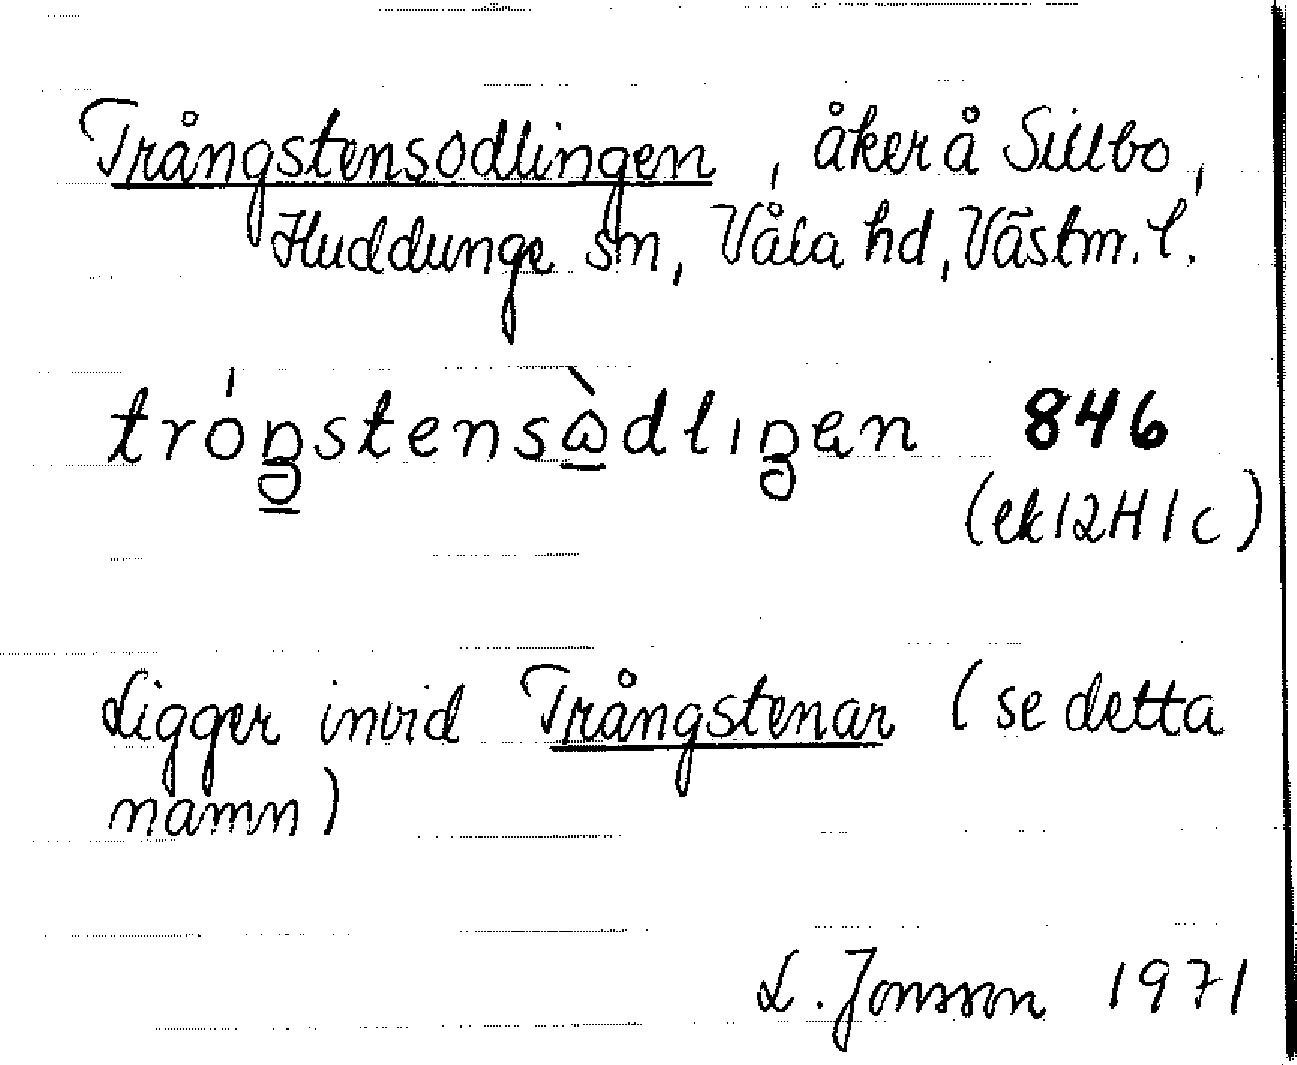 Trångstensodlingen, åker å Sillbo,
Huddunge sn, Våla hd, Västm. l.
tróŋstensòdliŋen 846
(ek 12H 1c)
Ligger invid Trångstenar (se detta
namn)
L. Jonsson 1971